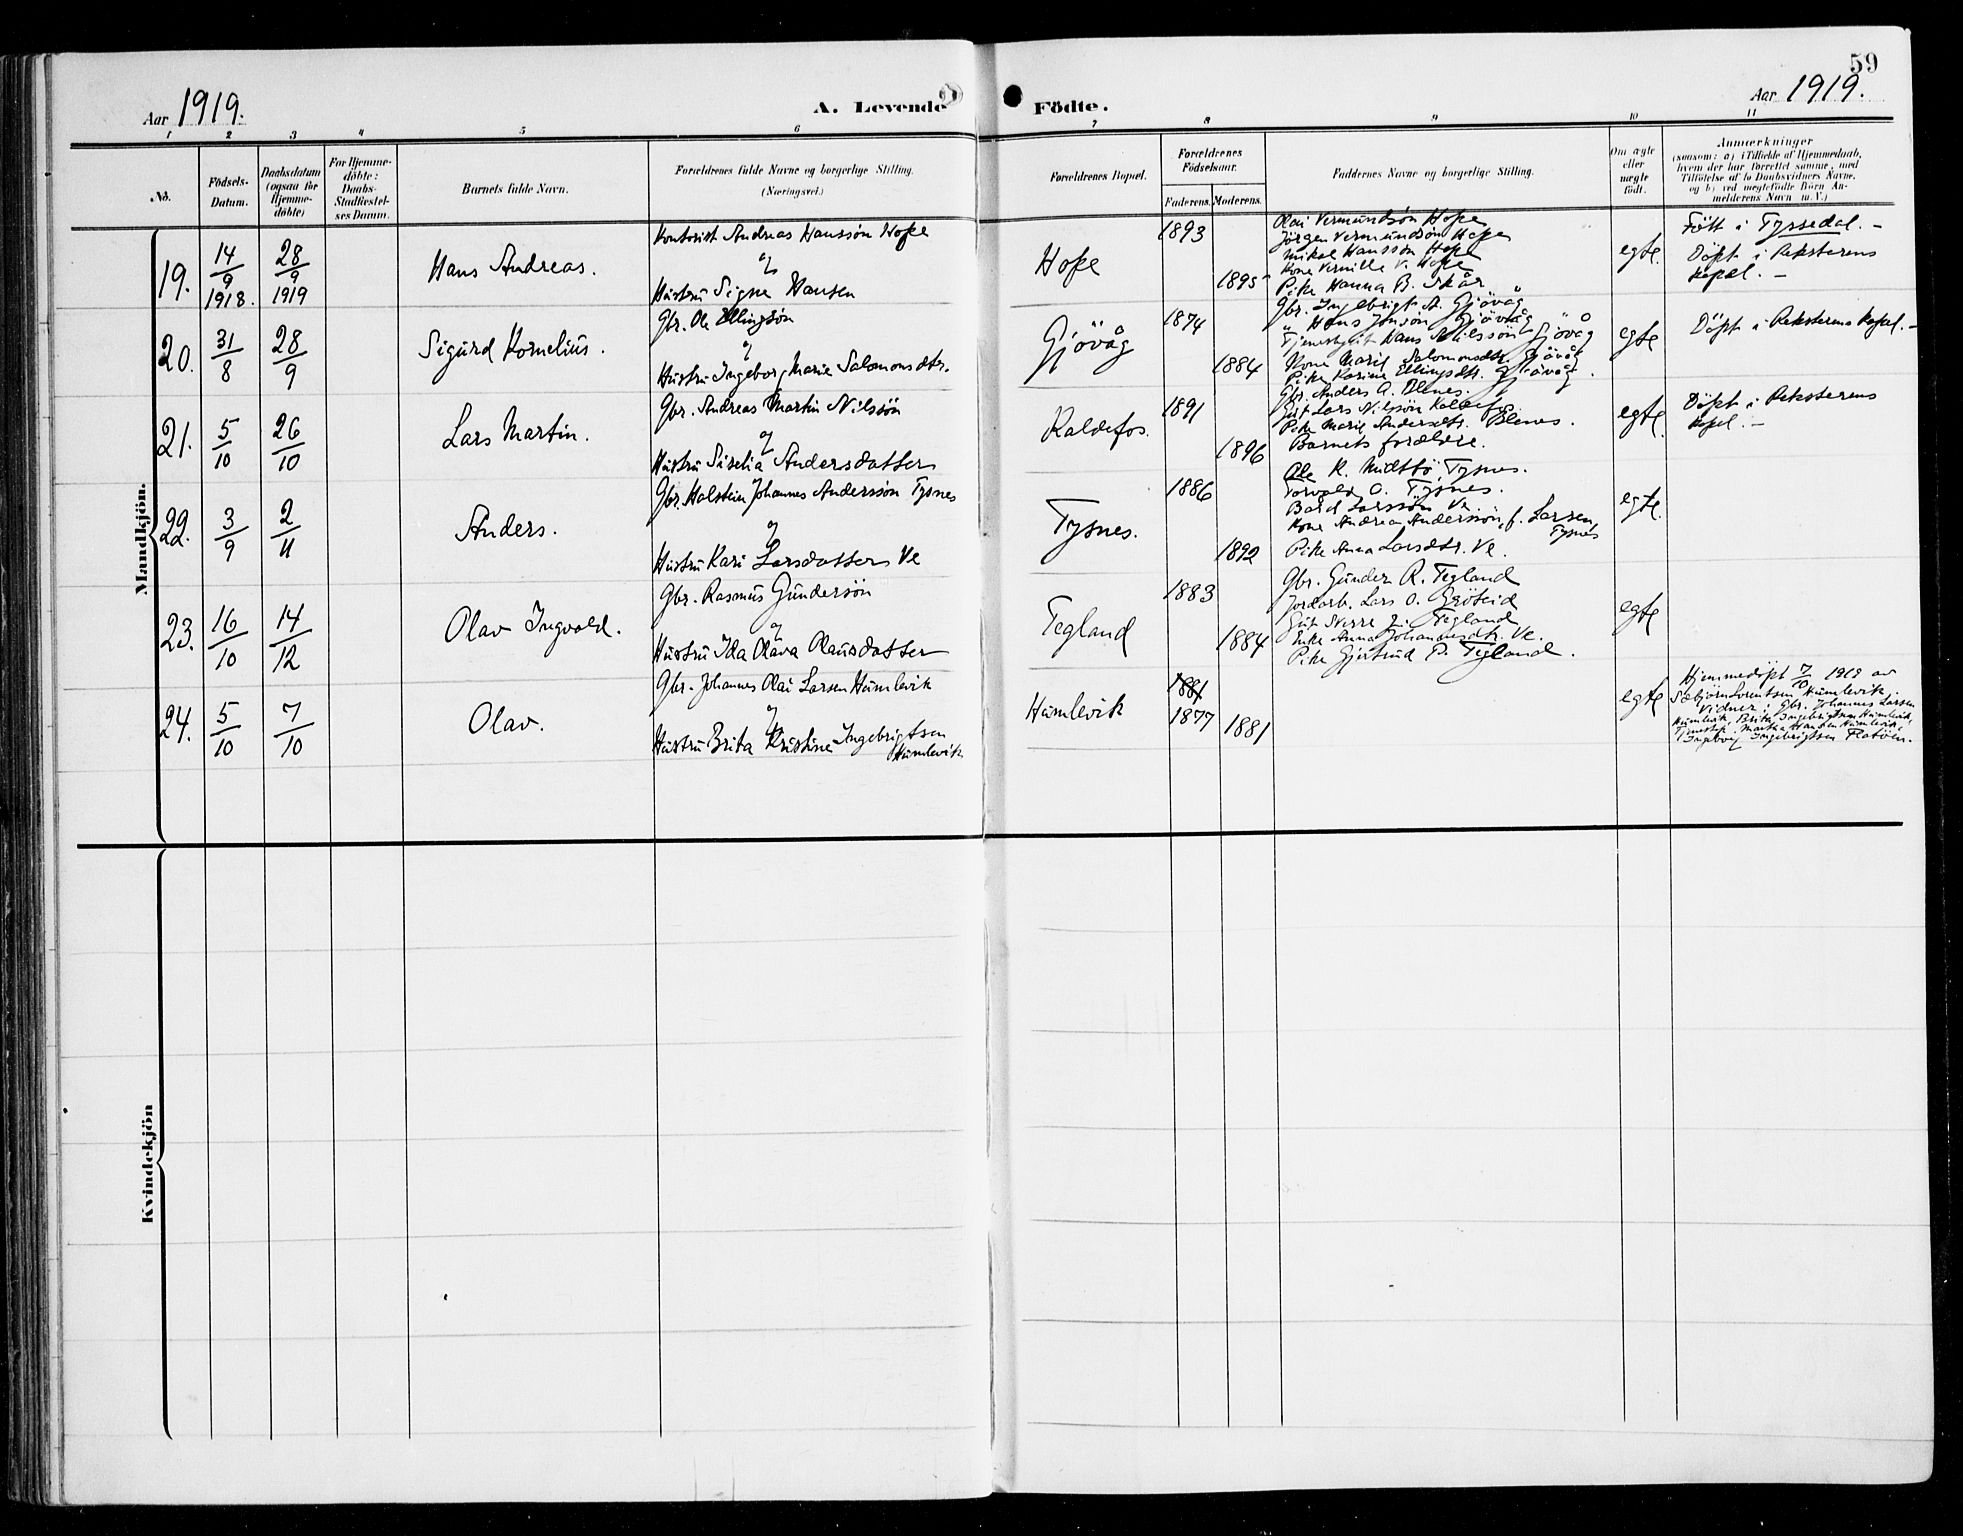 59
Aar 1919.
A. Levende Födte.
Aar 1919.
1 2 3 4 5 6 7 8 9 10 11
No.
Födsels-Datum.
Daabsdatum (ogsaa for Hjemme-döbte)
For Hjemme-döbte: Daabs-Stadfæstel-ses Datum.
Barnets fulde Navn.
Forældrenes fulde Navne og borgerlige Stilling. (Næringsvei.)
Forældrenes Bopæl.
Forældrenes Födselsaar.
Faderens. Moderens.
Faddernes Navne og borgerlige Stilling.
Om ægte eller uægte födt.
Anmærkninger
(saasom: a) i Tilfælde af Hjemmedaab,
hvem der har forrettet samme, med
Tilföielse af to Daabsvidners Navne,
og b) ved uægtefödte Börn An-
melderens Navn m. V.)
Mandkjön.
19.
14/9 1918.
28/9 1919
Hans Andreas.
Kontorist Andreas Hanssön Hope
og
Hustru Signe Hansen
Hope
1893
1895
Olai Vermundsön Hope
Jörgen Vermundsön Hope
Mikal Hanssön Hope
Kone Vernille V. Hope
Pike Hanna B. Skår
egte.
Fött i Tyssedal. -
Döpt i Reksterens
kapel. -
20.
31/8
28/9
Sigurd Kornelius.
Gbr. Ole Ellingsön
og
Hustru Ingeborg Marie Salomonsdtr.
Gjövåg
1874
1884
Gbr. Ingebrigt A. Gjövåg
" Hans Jonsön Gjövåg
Tjenestgut Hans Nilssön Gjövåg
Kone Marie Salomonsdtr. Gjövåg
Pike Karine Ellingsdtr. Gjövåg.
egte
Döpt i Reksterens kapel. -
21.
5/10
26/10
Lars Martin.
Gbr. Andreas Martin Nilssön
og
Hustru Siselia Andersdatter
Kaldefos.
1891
1896
Gbr. Anders A. Flenes.
Gut Lars Nilssön Kaldefos
Pike Marie Andersdtr. Flenes.
Barnets forældre.
egte.
Döpt i Reksterens
kapel. -
22.
3/9
2/11
Anders.
Gbr. Holstein Johannes Anderssön Tysnes
og
Hustru Kari Larsdatter Ve
Tysnes.
1886
1892
Ole K. Midttö, Tysnes.
Torvald O. Tysnes.
Bård Larssön Ve
Kone Andrea Anderssön, f. Larsen,
Tysnes
Pike Anna Larsdtr. Ve.
egte.
23.
16/10
14/12
Olav Ingvald.
Gbr. Rasmus Gundersön
og
Hustru Ida Olava Olausdatter
Tegland
1883
1884
Gbr. Gunder R. Tegland
Jordarb. Lars O. Gröteid
Gut Sverre G. Tegland
Enke Anna Johannesdtr. Ve.
Pike Gjertrud P. Tegland.
egte
24.
5/10
7/10
Olav.
Gbr. Johannes Olai Larsen Humlevik
og
Hustru Brita Kristine Ingebrigtsen
Humlevik
Humlevik
1881
1877
1881
egte
Hjemmedöpt 7/10 1919 av
Sæbjörn Lorentsen Humlevik.
Vidner: Gbr. Johannes Larsen
Humlevik, Brita Ingebrigtsen Humlevik,
Martha Hansen Humlevik,
Ingeborg Ingebrigtsen Flatöen.
Kvindekjön